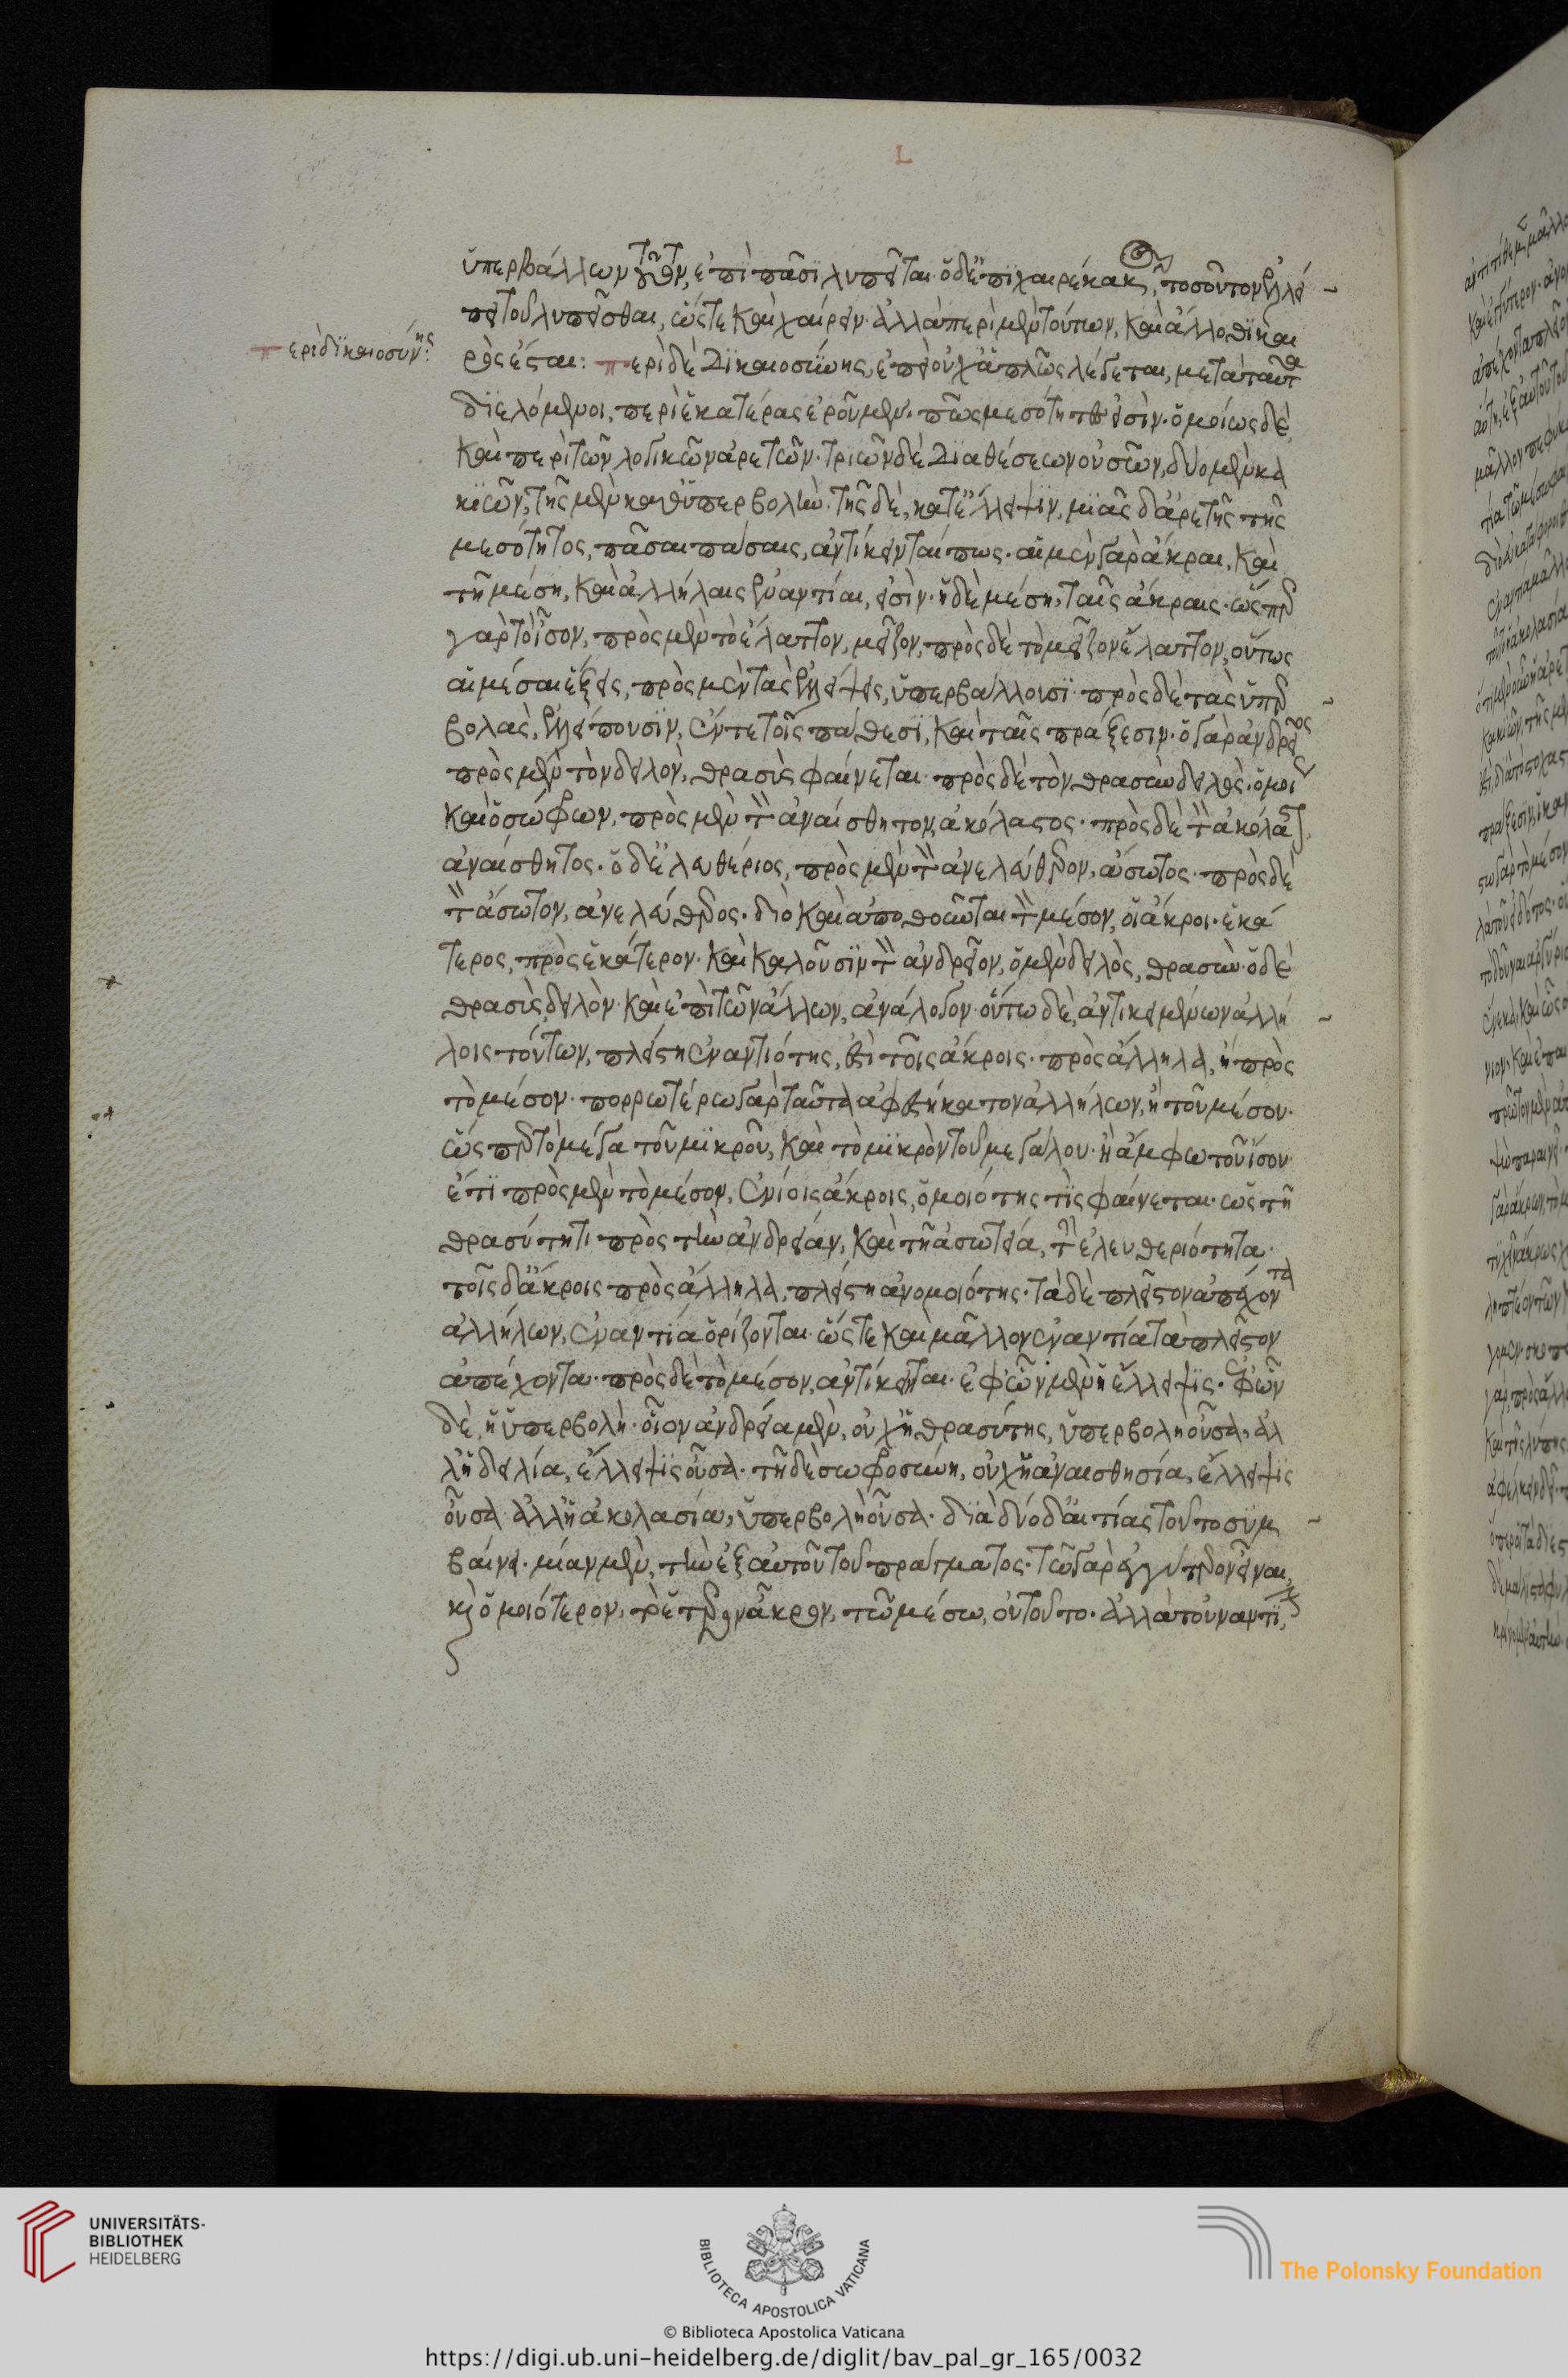 L
ὑπερβάλλων τοῦτον, ἐπὶ πᾶσι λυπεῖται· ὁ δ' ἐπιχαιρέκακος, τοσοῦτον ἐλλεί
πει τοῦ λυπεῖσθαι, ὥστε καὶ χαίρειν· ἀλλὰ περὶ μὲν τούτων, καὶ ἄλλοθι και
ρὸς ἔσται: περὶ δὲ δικαιοσύνης, ἐπεὶ οὐχ ἁπλῶς λέγεται, μετὰ ταῦτα
περὶ δικαιοσύνης:
διελόμενοι, περὶ ἑκατέρας ἐροῦμεν· πῶς μεσότητες εἰσὶν· ὁμοίως δὲ
καὶ περὶ τῶν λογικῶν ἀρετῶν· τριῶν δὲ διαθέσεων οὐσῶν, δύο μὲν κα
κιῶν, τῆς μὲν καθ' ὑπερβολὴν· τῆς δὲ, κατ' ἔλλειψιν, μιᾶς δ' ἀρετῆς τῆς
μεσότητος, πᾶσαι πάσαις, ἀντίκεινταί πως· αἱ μὲν γὰρ ἄκραι, καὶ
τῇ μέσῃ, καὶ ἀλλήλαις ἐναντίαι, εἰσὶν· ἡ δὲ μέση, ταῖς ἄκραις· ὥσπερ
γὰρ τὸ ἶσον, πρὸς μὲν τὸ ἔλαττον, μεῖζον, πρὸς δὲ τὸ μεῖζον ἔλαττον, οὕτως
αἱ μέσαι ἕξεις, πρὸς μὲν τὰς ἐλλείψεις, ὑπερβάλλουσι· πρὸς δὲ τὰς ὑπερ
βολὰς, ἐλλείπουσιν, ἔν τε τοῖς πάθεσι, καὶ ταῖς πράξεσιν· ὁ γὰρ ἀνδρεῖος
πρὸς μὲν τὸν δειλὸν, θρασὺς φαίνεται· πρὸς δὲ τὸν θρασὺν δειλός· ὁμοί
καὶ ὁ σώφρων, πρὸς μὲν τὸν ἀναίσθητον, ἀκόλαστος· πρὸς δὲ τὸν ἀκόλαστ
ἀναίσθητος· ὁ δ' ἐλευθέριος, πρὸς μὲν τὸν ἀνελεύθερον, ἄσωτος· πρὸς δὲ
τὸν ἄσωτον, ἀνελεύθερος· διὸ καὶ ἀποθοῦνται τὸν μέσον, οἱ ἄκροι· ἑκά
τερος, πρὸς ἑκάτερον· καὶ καλοῦσιν τὸν ἀνδρεῖον, ὁ μὲν δειλὸς, θρασὺν· ὁ δὲ
θρασὺς, δειλὸν· καὶ ἐπὶ τῶν ἄλλων, ἀνάλογον· οὕτω δὲ, ἀντικειμένων ἀλλή
λοις τούτων, πλείστη ἐναντιότης, ἐστὶ τοῖς ἄκροις· πρὸς ἄλληλα, ἢ πρὸς
τὸ μέσον· πορρωτέρω γὰρ ταῦτα ἀφεστήκατον ἀλλήλων, ἢ τοῦ μέσου·
ὥσπερ τὸ μέγα τοῦ μικροῦ, καὶ τὸ μικρὸν τοῦ μεγάλου· ἢ ἄμφω τοῦ ἴσου·
ἔτι πρὸς μὲν τὸ μέσον, ἐνίοις ἄκροις, ὁμοιότης τὶς φαίνεται· ὡς τῇ
θρασύτητι πρὸς τὴν ἀνδρείαν, καὶ τῇ ἀσωτείᾳ, πρὸς τὴν ἐλευθεριότητα·
τοῖς δ' ἄκροις πρὸς ἄλληλα, πλείστη ἀνομοιότης· τὰ δὲ πλεῖστον ἀπέχοντα
ἀλλήλων, ἐναντία ὁρίζονται· ὥστε καὶ μᾶλλον ἐναντία τὰ πλεῖστον
ἀπέχοντα· πρὸς δὲ τὸ μέσον, ἀντίκειται· ἐφ' ὧν μὲν ἡ ἔλλειψις· ἐφ' ὧν
δὲ, ἡ ὑπερβολή· οἷον ἀνδρεία μὲν, οὐχ ἡ θρασύτης, ὑπερβολὴ οὖσα, ἀλ
λ' ἡ δειλία, ἔλλειψις οὖσα· τῇ δὲ σωφροσύνῃ, οὐχ ἡ ἀναισθησία, ἔλλειψις
οὖσα· ἀλλ' ἡ ἀκολασία, ὑπερβολὴ οὖσα· διὰ δύο δ' αἰτίας τοῦτο συμ
βαίνει· μίαν μὲν, τὴν ἐξ αὐτοῦ τοῦ πράγματος· τῷ γὰρ ἐγγύτερον εἶναι,
καὶ ὁμοιότερον, τὸ ἕτερον ἄκρον, τῷ μέσῳ, οὐ τοῦτο· ἀλλὰ τοὐναντίον
UNIVERSITÄTS-
BIBLIOTHEK
HEIDELBERG
BIBLIOTECA APOSTOLICA VATICANA
The Polonsky Foundation
© Biblioteca Apostolica Vaticana
https://digi.ub.uni-heidelberg.de/diglit/bav_pal_gr_165/0032